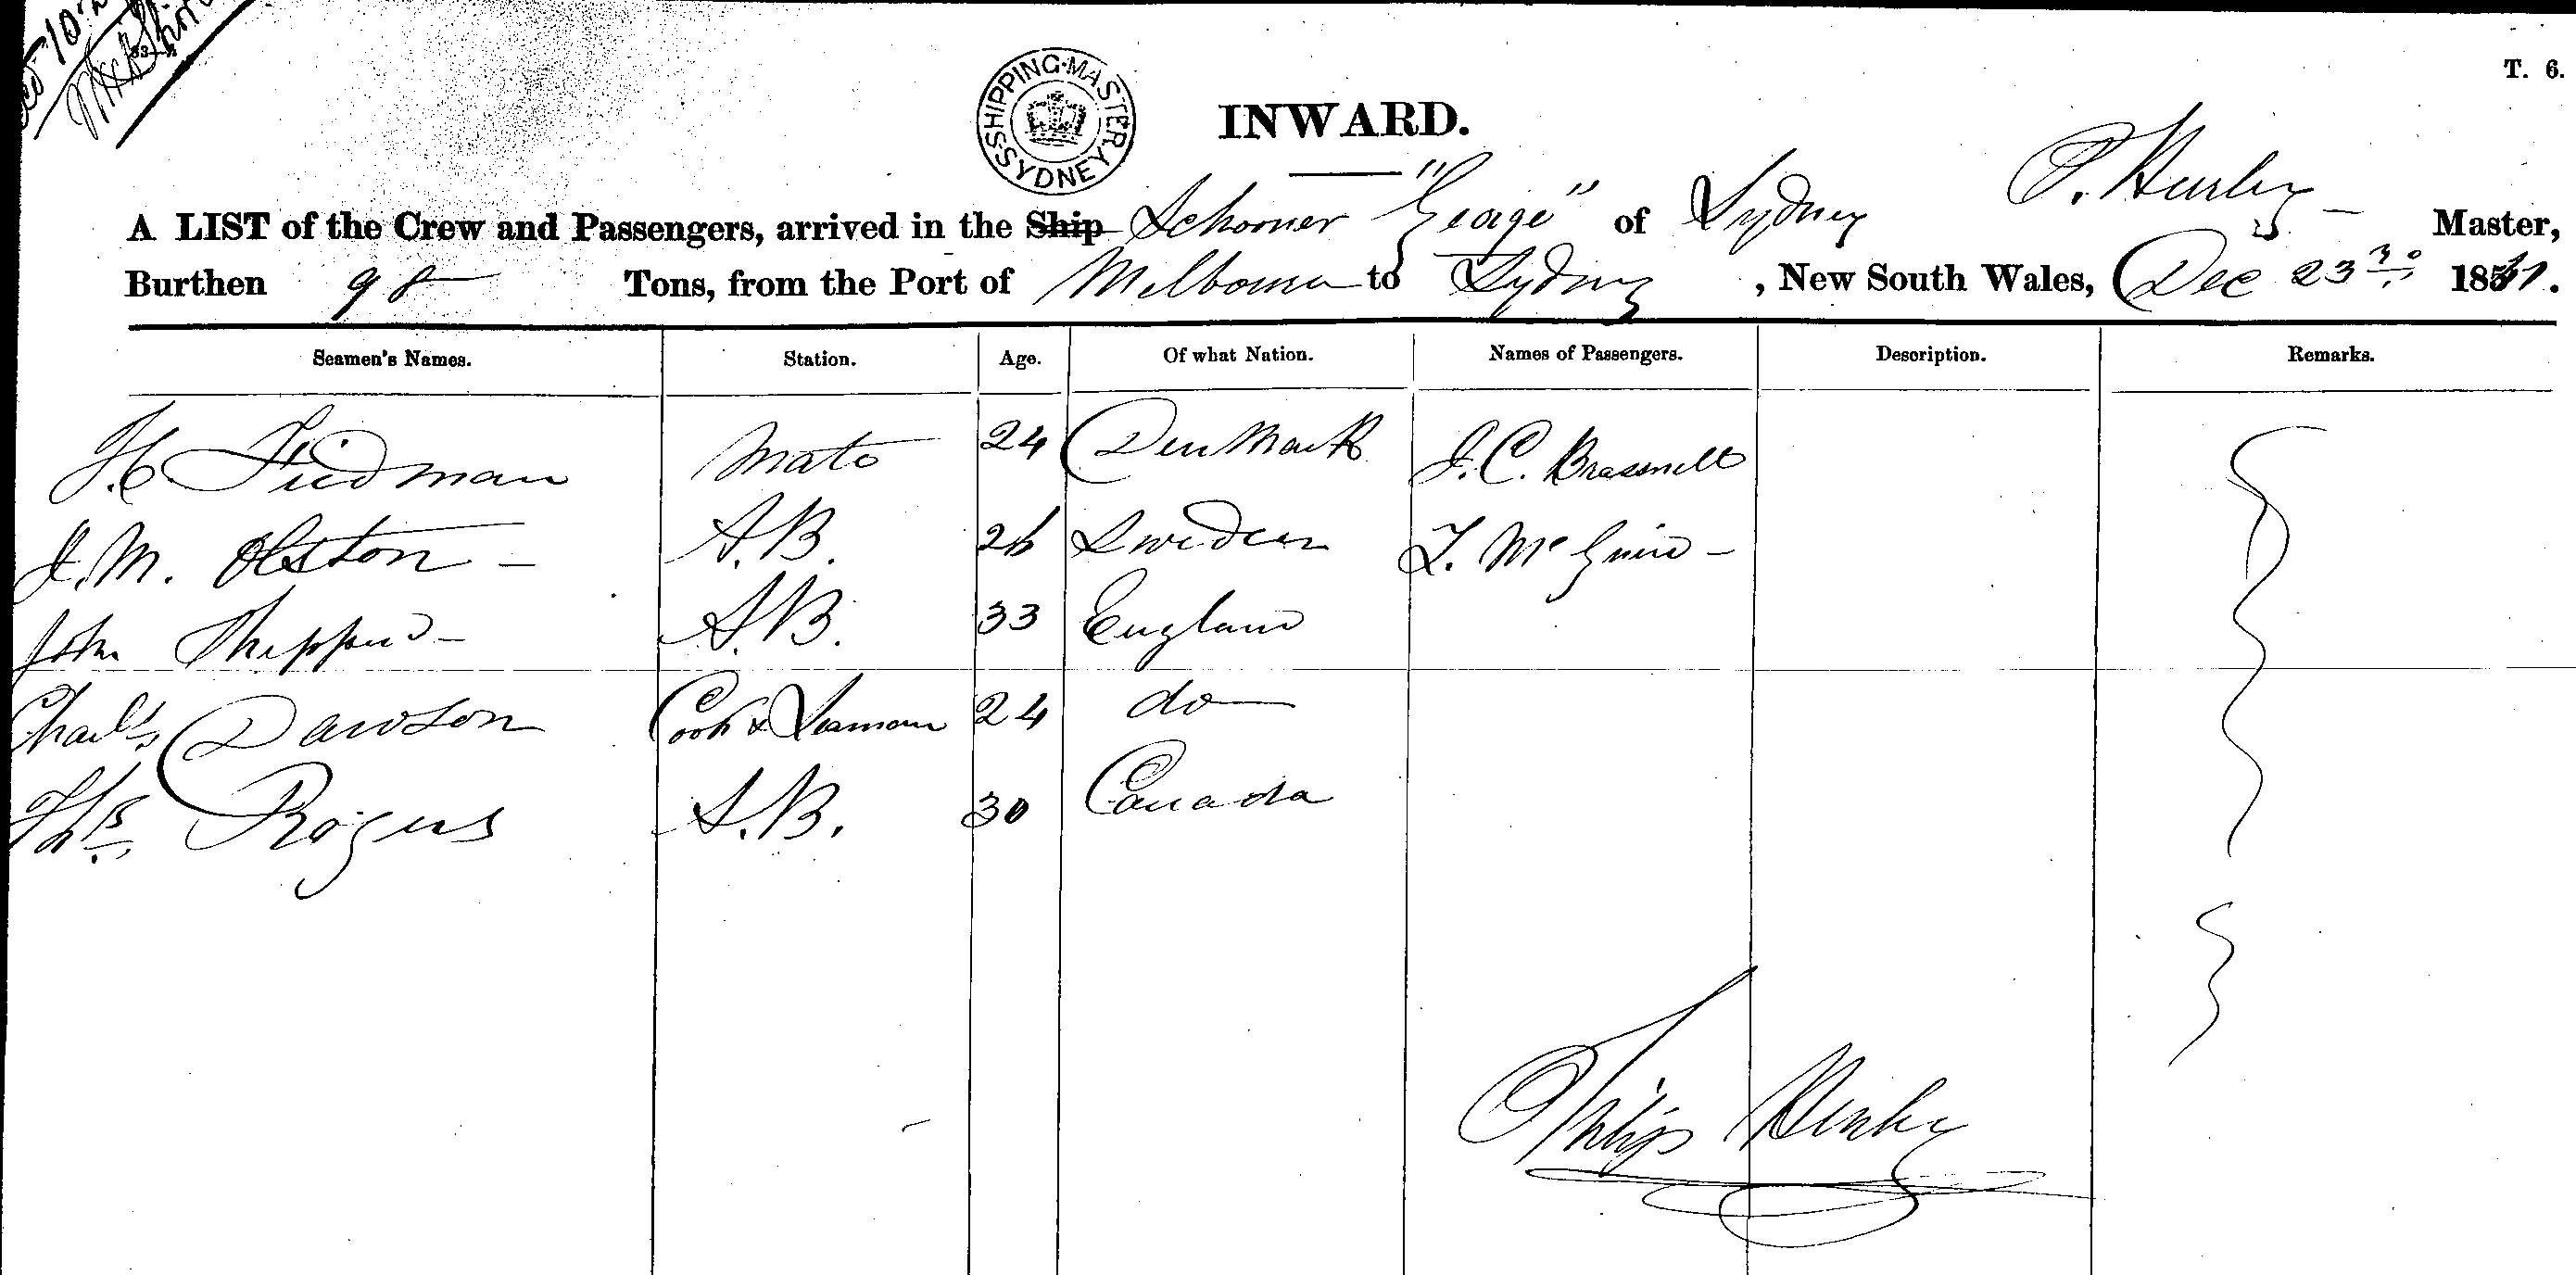 T. 6.
SHIPPING·MASTER·SYDNEY·
INWARD.
A LIST of the Crew and Passengers, arrived in the Ship Schooner "George" of Sydney P. Hurley Master,
Burthen 98 Tons, from the Port of Melbourne to Sydney, New South Wales, Dec 23rd 18
Seamen's Names. Station. Age. Of what Nation. Names of Passengers. Description. Remarks.
Mate 24 Denmark J. C.
J. M. A.B. 26 Sweden T. McGuire
John Sheppard A.B. 33 England
Charls Dawson Cook & Seaman 24 do
Ths Rogers A.B. 30 Canada
Philip Hurley